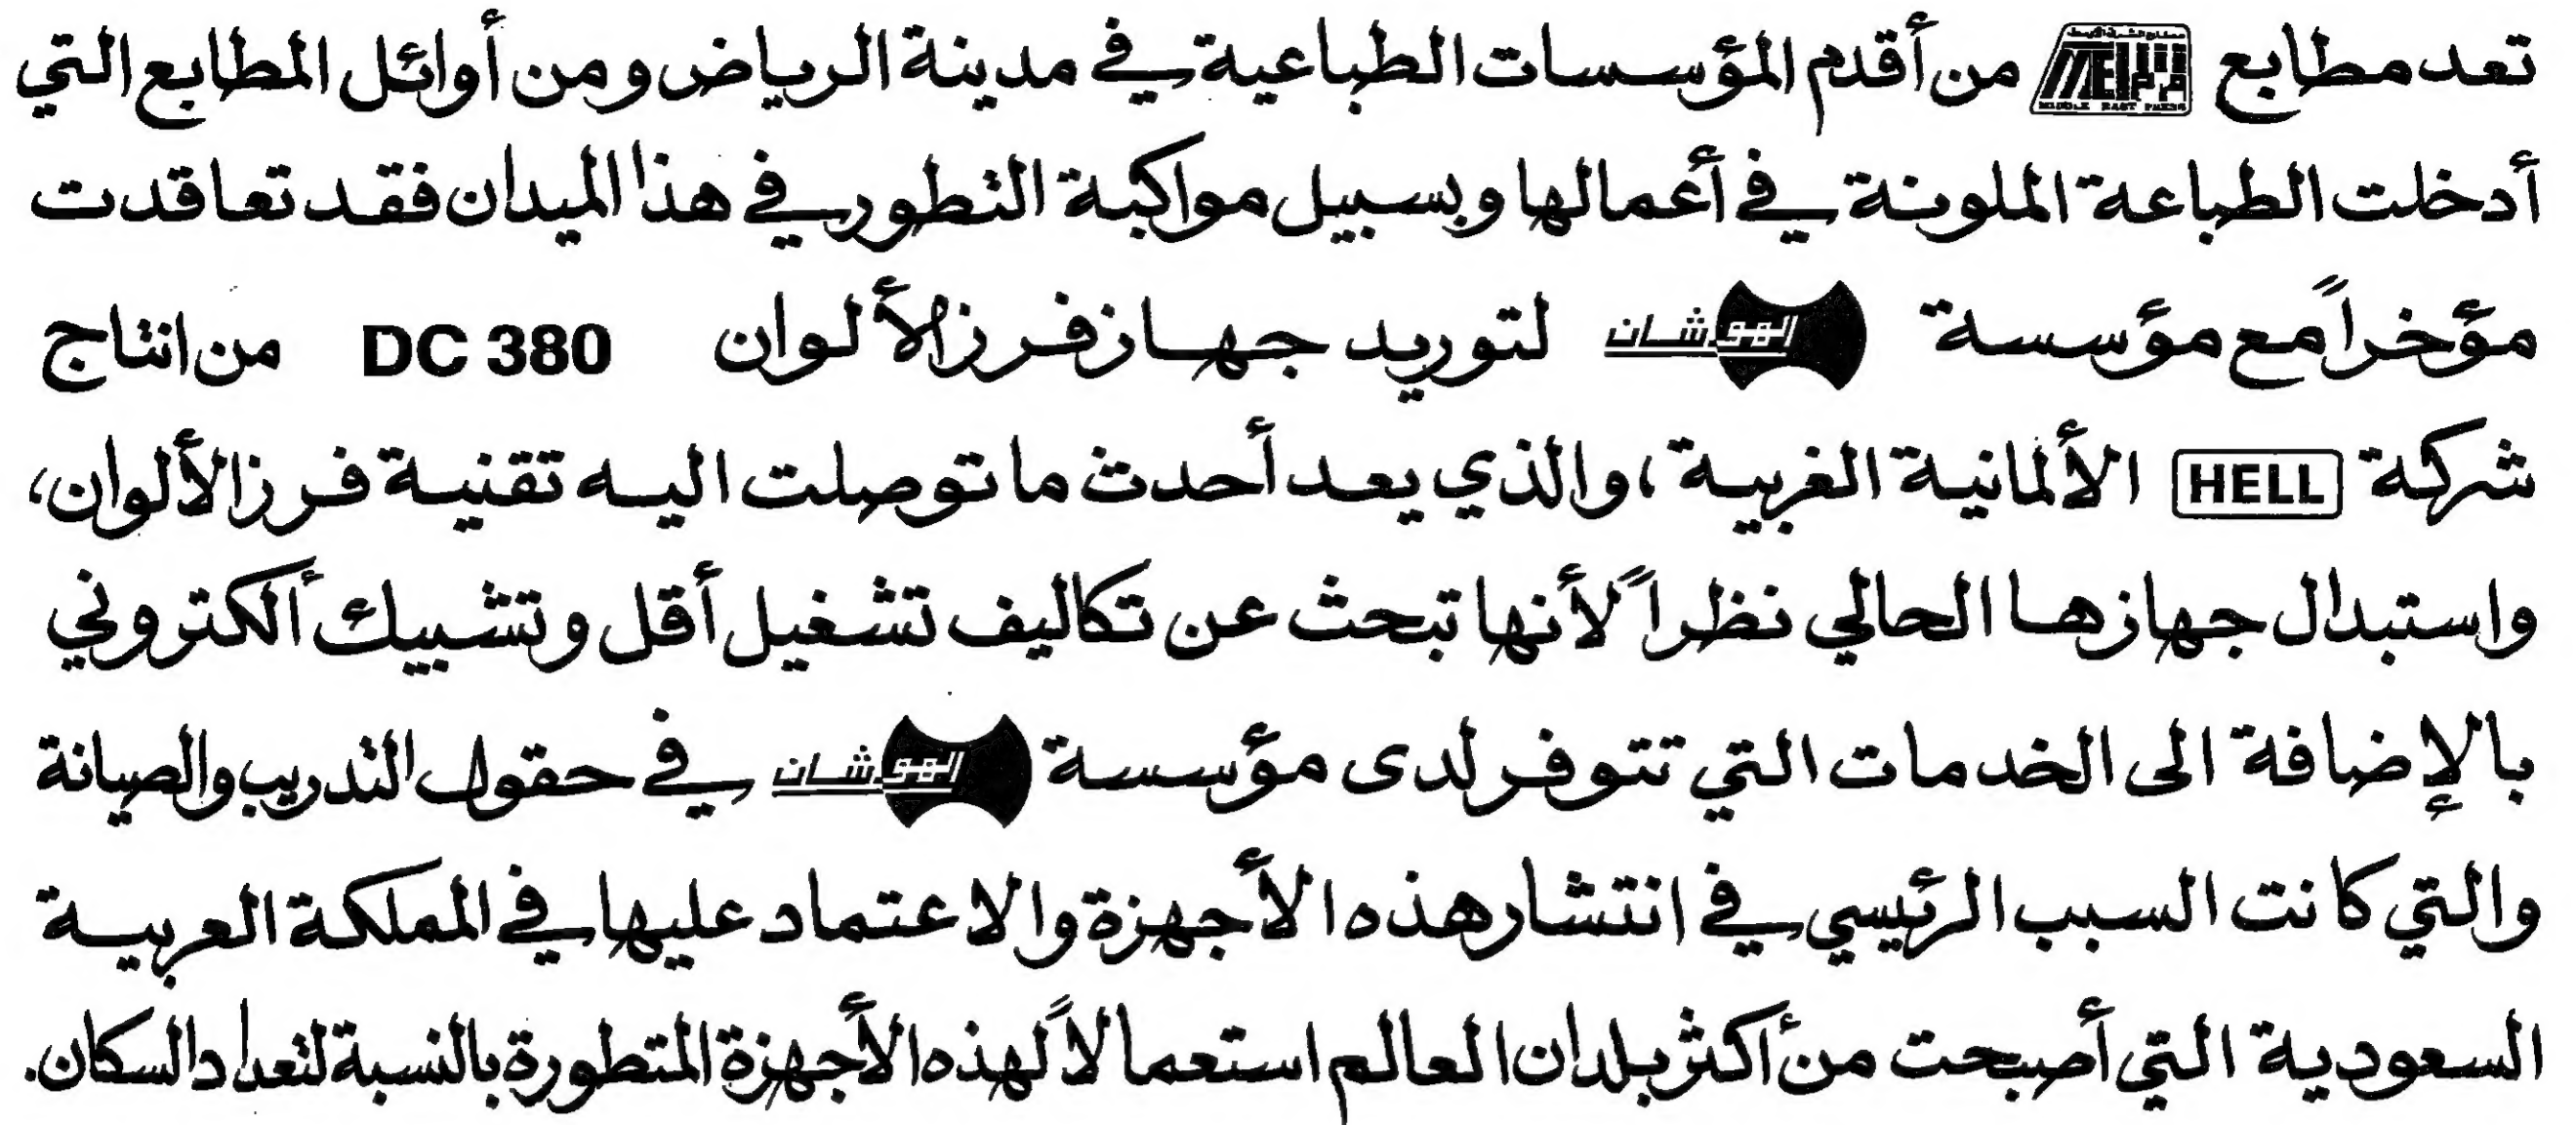 تعد مطابع MEP MIDDLE EAST PRESS من أقدم المؤسسات الطباعية في مدينة الرياض ومن أوائل المطابع التي
أدخلت الطباعة الملونة في أعمالها وبسبيل مواكبة التطور في هذا الميدان فقد تعاقدت
مؤخراً مع مؤسسة الهوشان لتوريد جهاز فرز الألوان DC 380 من انتاج
شركة HELL الألمانية الغربية، والذي يعد أحدث ما توصلت اليه تقنية فرز الألوان،
واستبدال جهازها الحالي نظراً لأنها تبحث عن تكاليف تشغيل أقل وتشبيك ألكتروني
بالإضافة الى الخدمات التي تتوفر لدى مؤسسة الهوشان في حقول التدريب والصيانة
والتي كانت السبب الرئيسي في انتشار هذه الأجهزة والاعتماد عليها في المملكة العربية
السعودية التي أصبحت من أكثر بلدان العالم استعمالاً لهذه الأجهزة المتطورة بالنسبة لتعداد السكان.